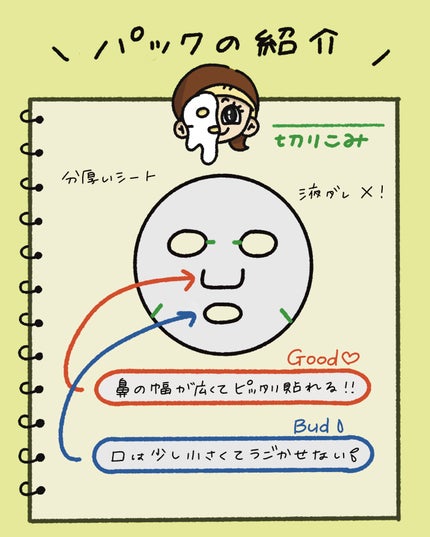 パックの紹介
切りこみ
分厚いシート
液ダレ ×!
Good♡
鼻の幅が広くてピッタリ貼れる!!
Bud
口は少し小さくてうごかせない